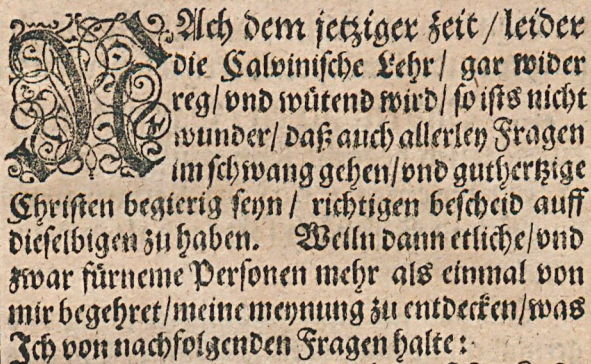 NAch dem jetziger zeit / leider
die Calvinische Lehr / gar wider
reg / vnd wütend wird / so ists nicht
wunder / daß auch allerley Fragen
im schwang gehen / vnd guthertzige
Christen begierig seyn / richtigen bescheid auff
dieselbigen zu haben. Weiln dann etliche / vnd
zwar fürneme Personen mehr als einmal von
mir begehret / meine meynung zu entdecken / was
Jch von nachfolgenden Fragen halte: